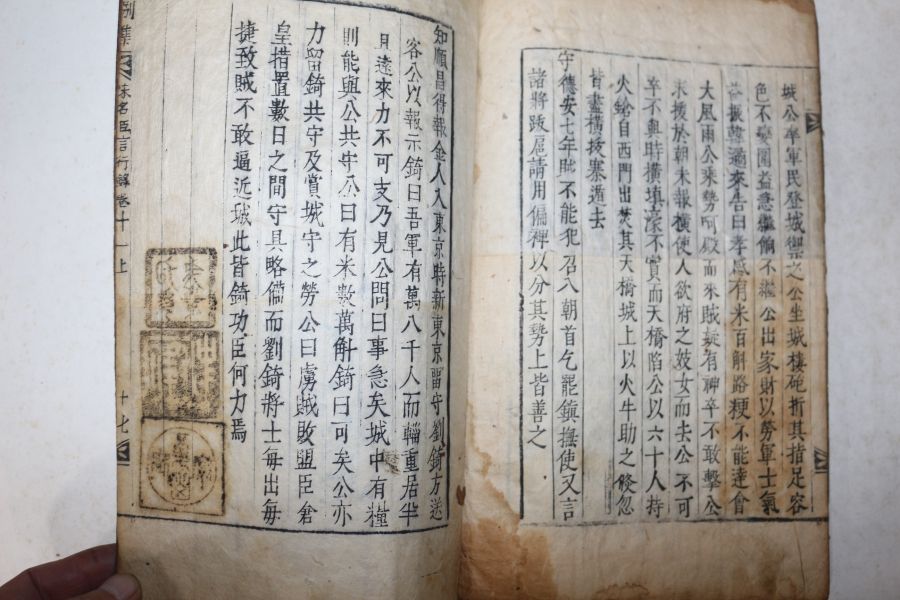 城公率軍民登城禦之公坐城樓砲折其指足容
色不變圍益急繼餉不繼公出家財以勞軍士氣
益振韓滿來告曰孝感有米百斛路梗不能達會
大風雨公乘勢呵殿而來賊疑有神卒不敢擊公
求援於朝未報橫使人欲府之妓女而去公不可
卒不與時橫填濠不實而天橋陷公以六十人持
火鎗自西門出焚其天橋城上以火牛助之倏忽
皆盡橫拔寨遁去
守德安七年賊不能犯召入朝首乞罷鎮撫使又言
諸將跋扈請用偏裨以分其勢上皆善之
知順昌得報金人入東京時新東京留守劉錡方送
客公以報示錡曰吾軍有萬八千人而輜重居半
且遠來力不可支乃見公問曰事急矣城中有糧
則能與公共守公曰有米數萬斛錡曰可矣公亦
力留錡共守及賞城守之勞公曰虜敗盟臣倉
皇措置數日之間守具略備而劉錡將士每出每
捷致賊不敢逼近城此皆錡功臣何力焉
別集
宋名臣言行錄卷十一上
十七